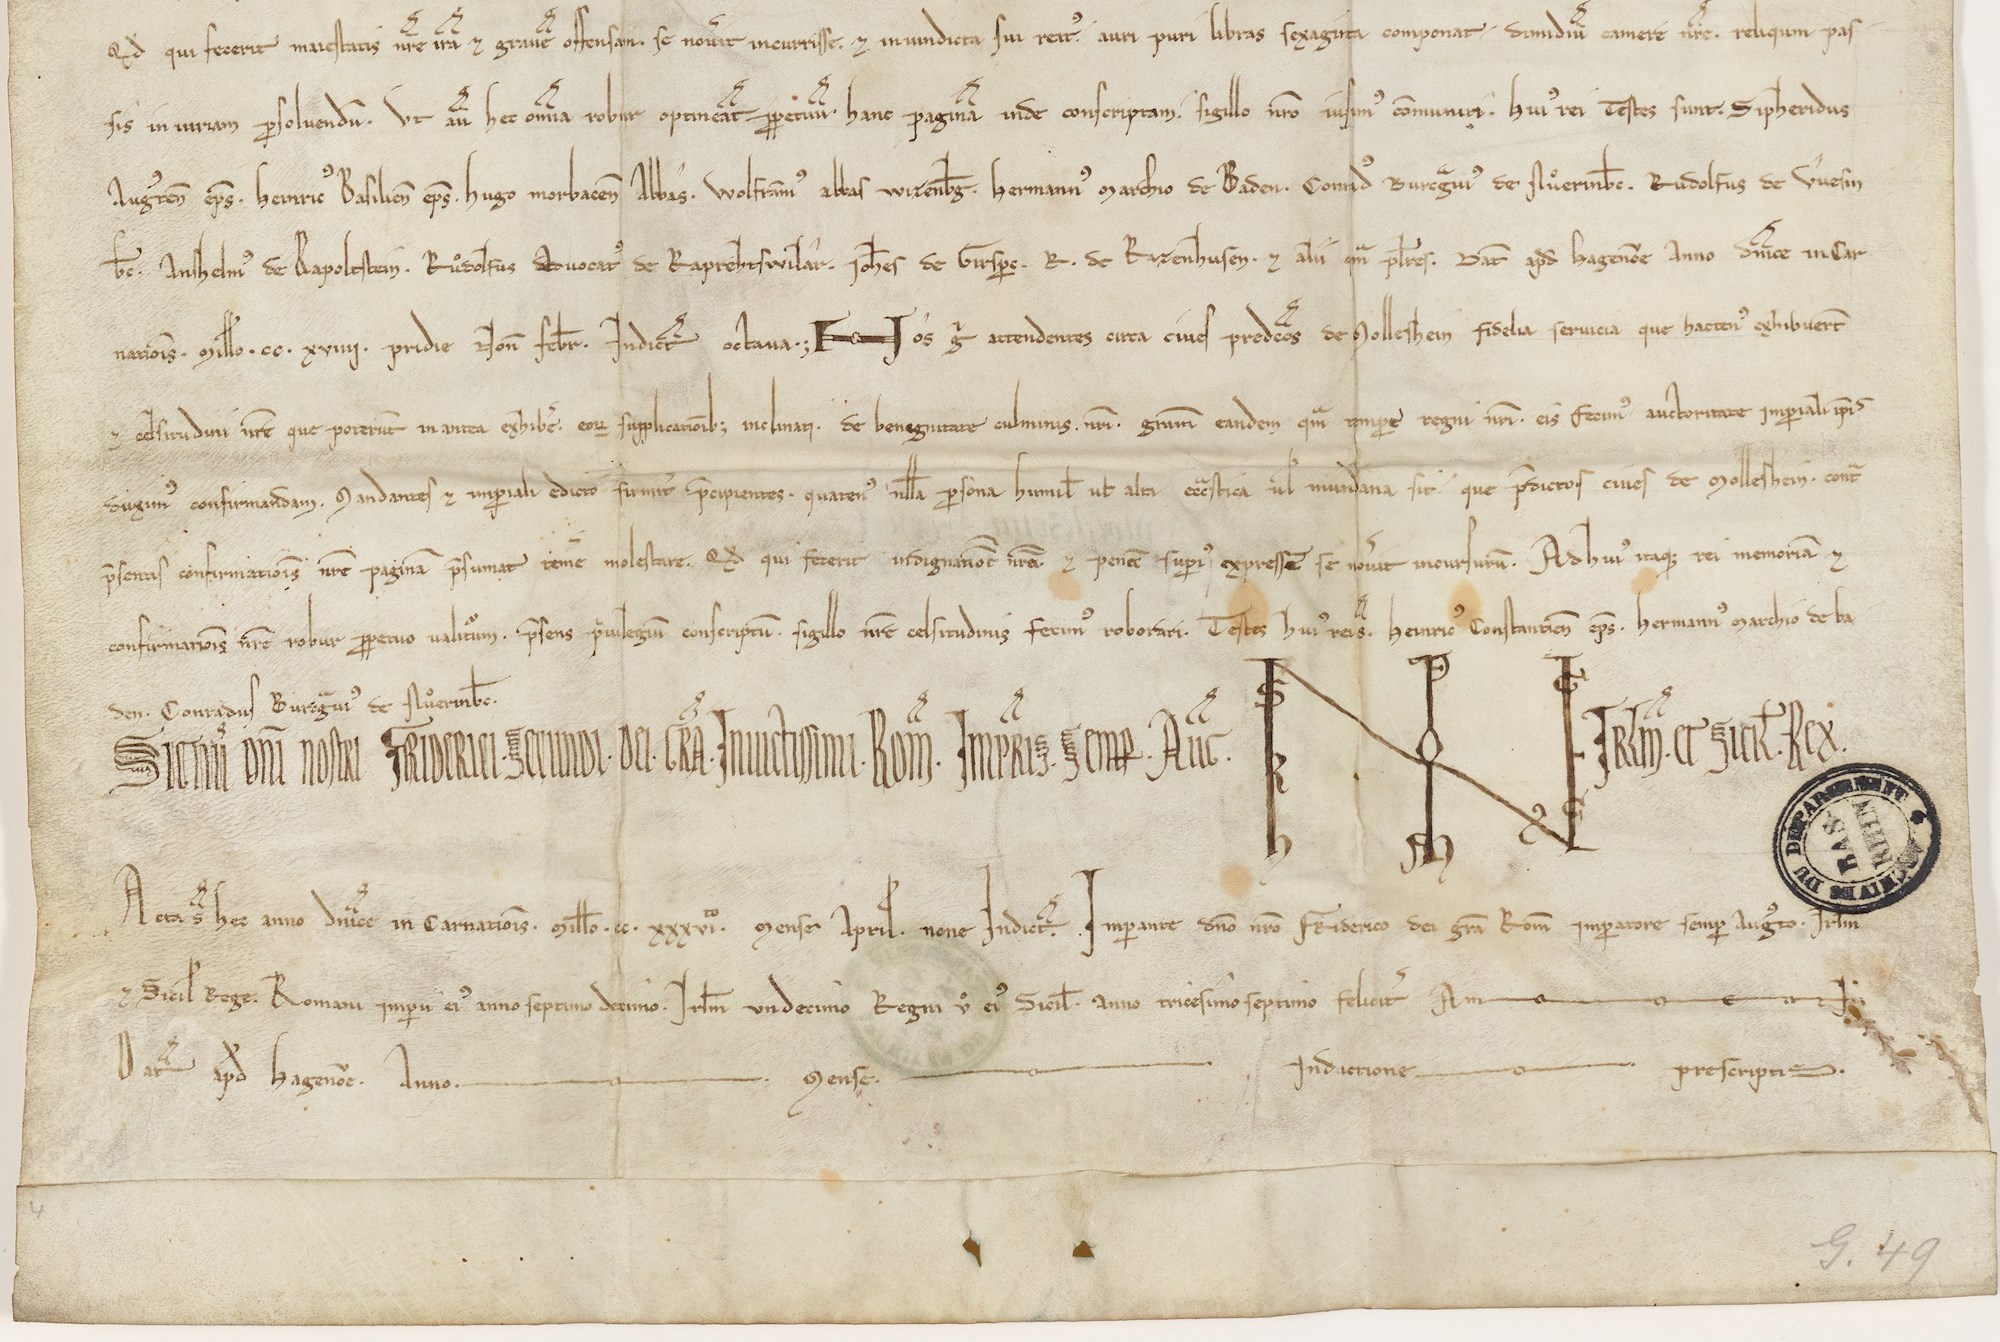 Qd qui fecerit maiestatis nre ira ⁊ grave offensan. se noverit incurrisse. ⁊ in vindicta sui reat᷒ auri puri libras sexaginta componat. dimidiu camere nre. reliqum pas
sis iniuriam psolvendu. Ut au hec omnia robur optineat ppetuu. hanc pagina inde conscriptam sigillo nro iussim᷒ comuniri. hui᷒ rei Testes sunt. Sipheridus
Augusten eps. heinric᷒ Basilien eps. hugo morbacen Abbas. Wolfram᷒ abbas wizenbg. hermann᷒ marchio de Baden. Conrad᷒ Burcgravi᷒ de Nůerinbc. Rudolfus de Vvesin
bc. Anshelm᷒ de Rapoltstein. Růdolfus Advocat᷒ de Raprehtswilar. Johes de Girspc. R. de Razenhusen. ⁊ alii qm plres. Dat apd hagenoe Anno dnice in Car
nationis. Millo. cc. xviiii. pridie Non febr. Indict octava. Nos g attendentes circa cives predcos de Molleshein fidelia servicia que hacten᷒ exhibuert
⁊ celsitudini nre que poterunt in antea exhibe. eor supplicationib; inclinati. de benegnitate culminis nri. gram eandem qm tempe regni nri. eis fecim᷒ auctoritate imperiali ipis
duxim᷒ confirmandam. Mandantes ⁊ imperiali edicto firmit precipientes. quaten᷒ nlla psona humil ut alti eccastica ul mundana sit que pdictos cives de Molleshein. cont
psentis confirmationis nre pagina psumat teme molestare. Qd qui fecerit indignatioe nra ⁊ pene supi᷒ expresse se noverit incursuru. Ad hui᷒ itaq; rei memoria ⁊
confirmationis nre robur ppetuo valitum. psens pivilegiu conscriptu. sigillo nre celsitudinis fecim᷒ roborari. Testes hui᷒ rei s. heinric᷒ Constantien eps. hermann᷒ marchio de ba
den. Conradus Burcgravi᷒ de Nůerinbc.
Signu dni nostri Friderici. Secundi. dei. gra. Invictissimi. Rom. Impris. Semp. Aug. Irlm. et Sicil. Rex.
Acta s hec anno dnice in Carnationis. Millo. cc. xxxvi.to Mense April. none Indict. Imperante dno nro Friderico dei gra Rom imperatore semp Augusto. Irlm
⁊ Sicil Rege. Romani imperii ei᷒ anno septimo decimo. Irlm undecimo Regni v ei᷒ Sicil. anno tricesimo septimo felicit Am e n
Dat apd hagenoe. Anno. Mense. Indictione prescriptis.
ARCHIVES DU DEPARTEMENT
BAS
RHIN
G. 49